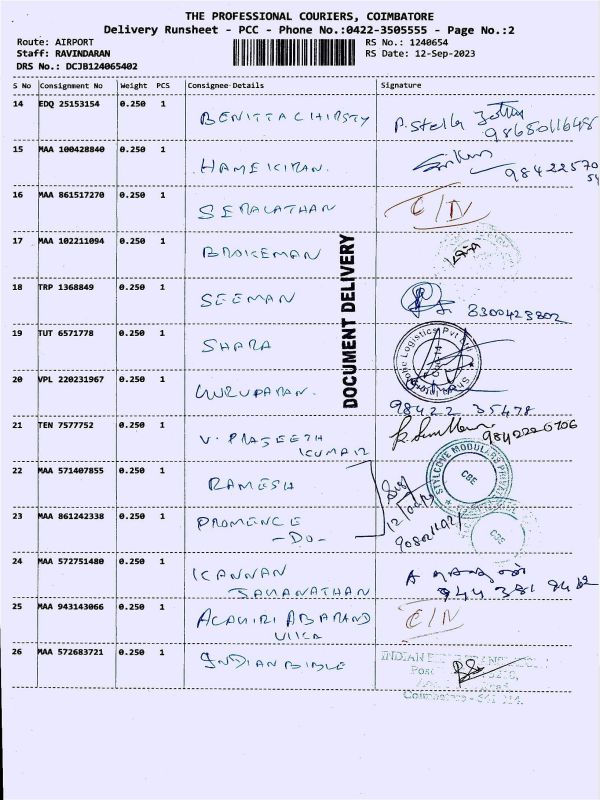 THE PROFESSIONAL COURIERS, COIMBATORE
Delivery Runsheet - PCC - Phone No.:0422-3505555 - Page No.:2
Route: AIRPORT
RS No.: 1240654
Staff: RAVINDARAN
RS Date: 12-Sep-2023
DRS No.: DCJB124065402
S No Consignment No Weight PCS Consignee Details Signature
14 EDQ 25153154 0.250 1 BENITTA CHIRSTY P. Stella
9865011648
15 MAA 100428840 0.250 1 HAMEKIRAN.
98422570
54
16 MAA 861517270 0.250 1 SERALATHAN C/N
17 MAA 102211094 0.250 1 BROKEMAN
18 TRP 1368849 0.250 1 SEEMAN 8300423802
DOCUMENT DELIVERY
19 TUT 6571778 0.250 1 SHARA
20 VPL 220231967 0.250 1 GURUPARAN.
98422 35478
21 TEN 7577752 0.250 1 V. PRAJEETH
KUMAR
9842220706
22 MAA 571407855 0.250 1 RAMESH
STYLCOVE MODULARS
CBE
23 MAA 861242338 0.250 1 PROMENCE
-DO-
CBE
24 MAA 572751480 0.250 1 KANNAN
RAMANATHAN
944 381 8462
25 MAA 943143066 0.250 1 C/N
26 MAA 572683721 0.250 1 INDIAN BIBLE
INDIAN
Coimbatore - 641 014.